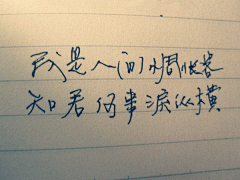 我是人间惆怅客
知君何事泪纵横